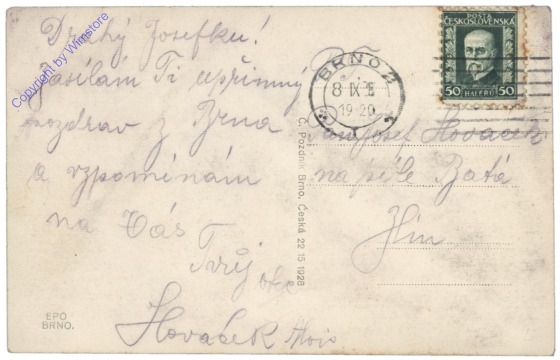 Drahý Josefku!
Zasílám Ti upřímný
pozdrav z Brna
a vzpomínám
na Vás
Tvůj
Alois
Josef
na pile Baťa
POSTA
ČESKOSLOVENSKÁ
50 HALÉŘŮ 50
BRNO 2
8 IX
19-20
Č. Pozdník Brno, Česká 22 15 1928
EPO
BRNO.
Copyright by Wimstore